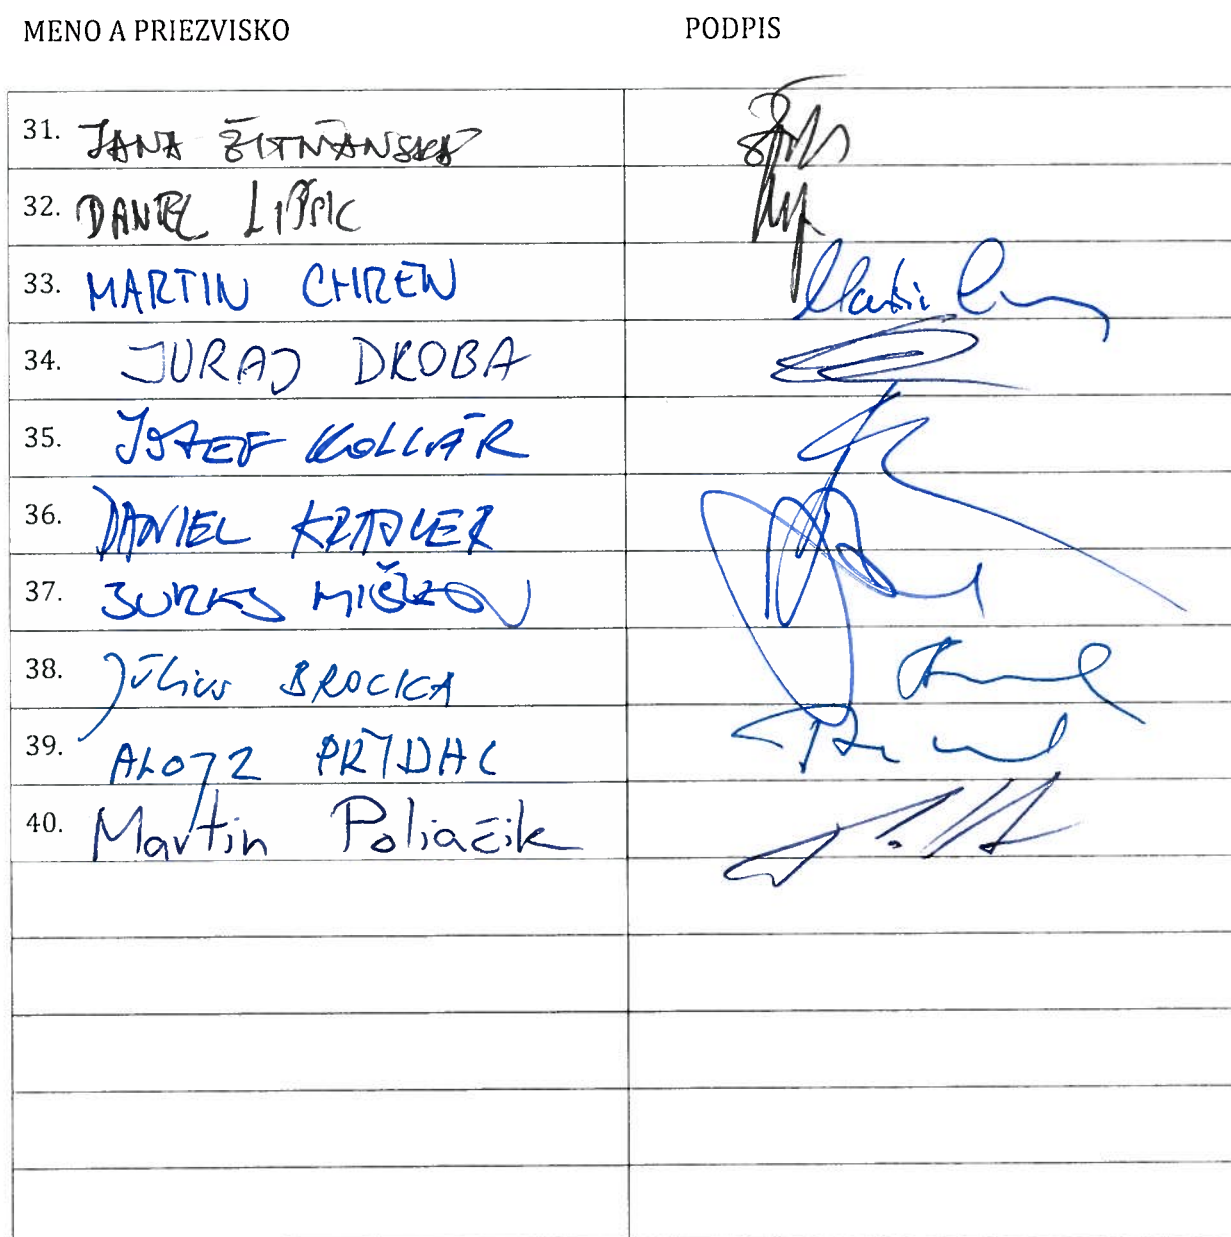 MENO A PRIEZVISKO PODPIS
31. JANA ŽITŇANSKÁ
32. DANIEL LIPŠIC
33. MARTIN CHREN
34. JURAJ DROBA
35. JOZEF KOLLÁR
36. DANIEL KRAJCER
37. JURAJ MIŠKOV
38. JÚLIUS BROCKA
39. ALOJZ PŘIDAL
40. Martin Poliačik